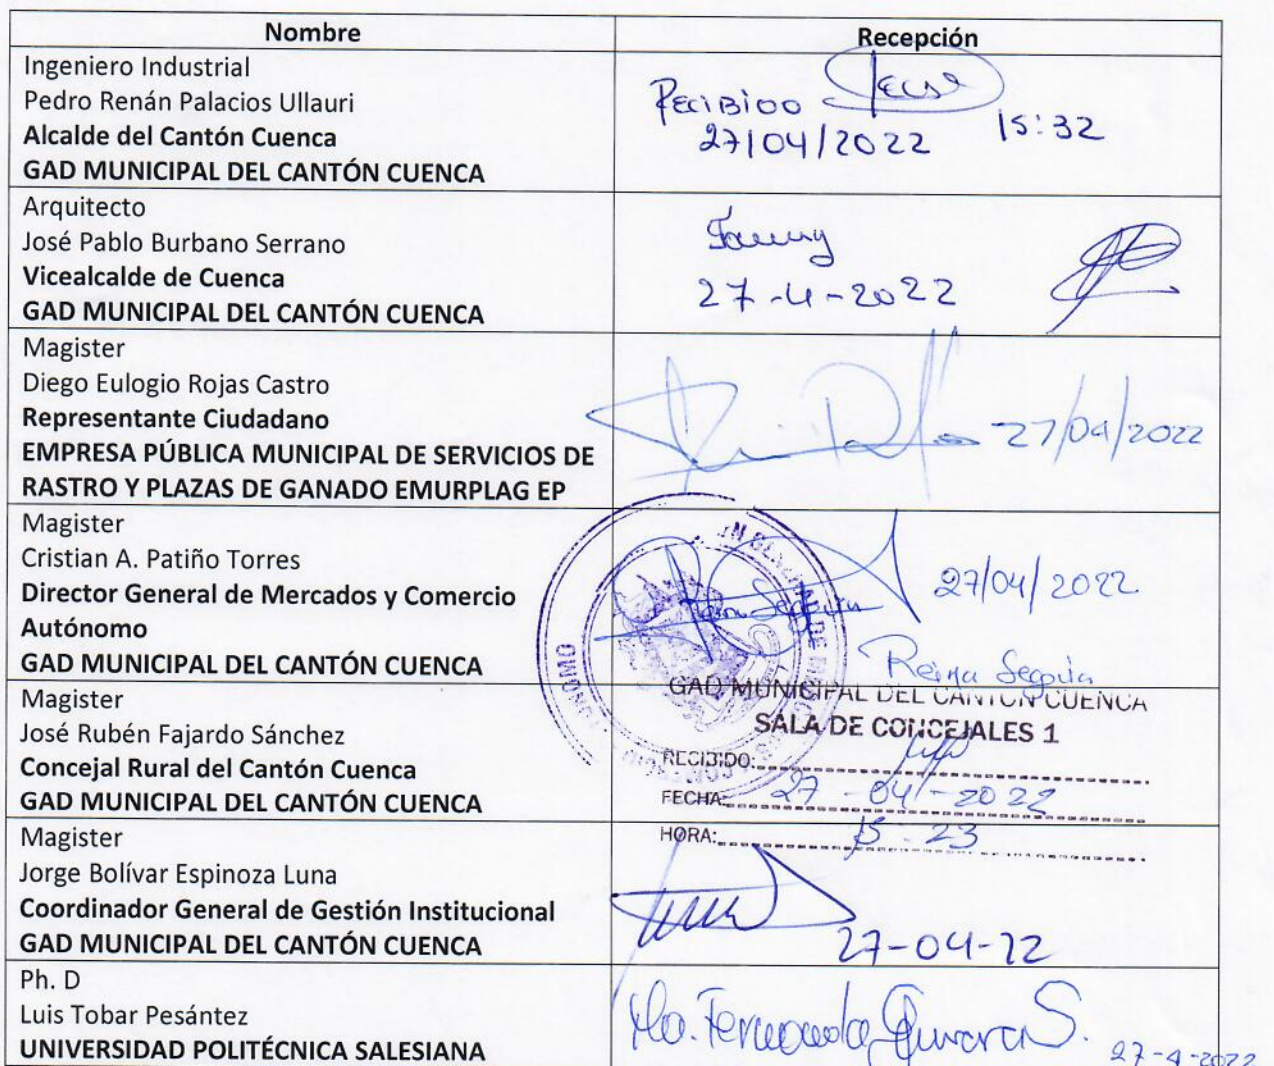 Nombre
Recepción
Ingeniero Industrial
Pedro Renán Palacios Ullauri
Alcalde del Cantón Cuenca
GAD MUNICIPAL DEL CANTÓN CUENCA
Recibido
27/04/2022
15:32
Arquitecto
José Pablo Burbano Serrano
Vicealcalde de Cuenca
GAD MUNICIPAL DEL CANTÓN CUENCA
27-4-2022
Magister
Diego Eulogio Rojas Castro
Representante Ciudadano
EMPRESA PÚBLICA MUNICIPAL DE SERVICIOS DE
RASTRO Y PLAZAS DE GANADO EMURPLAG EP
27/04/2022
Magister
Cristian A. Patiño Torres
Director General de Mercados y Comercio
Autónomo
GAD MUNICIPAL DEL CANTÓN CUENCA
27/04/2022
Magister
José Rubén Fajardo Sánchez
Concejal Rural del Cantón Cuenca
GAD MUNICIPAL DEL CANTÓN CUENCA
GAD MUNICIPAL DEL CANTON CUENCA
SALA DE CONCEJALES 1
RECIBIDO:
FECHA: 27-04-2022
HORA: 15:23
Magister
Jorge Bolívar Espinoza Luna
Coordinador General de Gestión Institucional
GAD MUNICIPAL DEL CANTÓN CUENCA
Ph. D
Luis Tobar Pesántez
UNIVERSIDAD POLITÉCNICA SALESIANA
Ma. Fernanda
27-4-2022